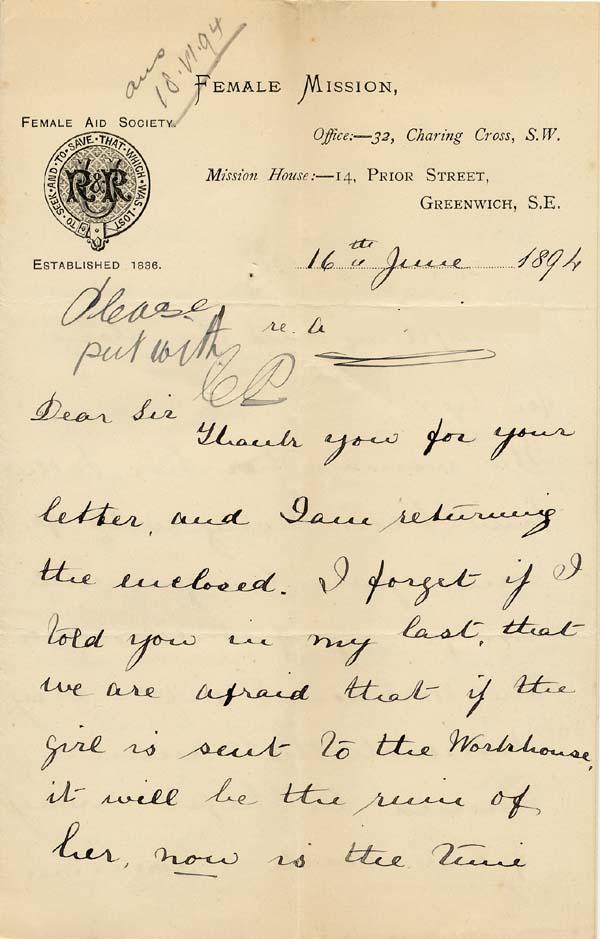 ans
18.VI.94
FEMALE MISSION,
FEMALE AID SOCIETY.
Office:—32, Charing Cross, S.W.
TO·SEEK·AND·TO·SAVE·THAT·WHICH·WAS·LOST
R & R
Mission House:—14, PRIOR STREET,
GREENWICH, S.E.
ESTABLISHED 1836.
16th June 1894
Please
put with
re. A
Dear Sir
Thank you for your
letter, and I am returning
the enclosed. I forget if I
told you in my last, that
we are afraid that if the
girl is sent to the Workhouse,
it will be the ruin of
her, now is the time